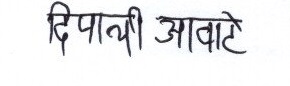 दिपाली आवाटे